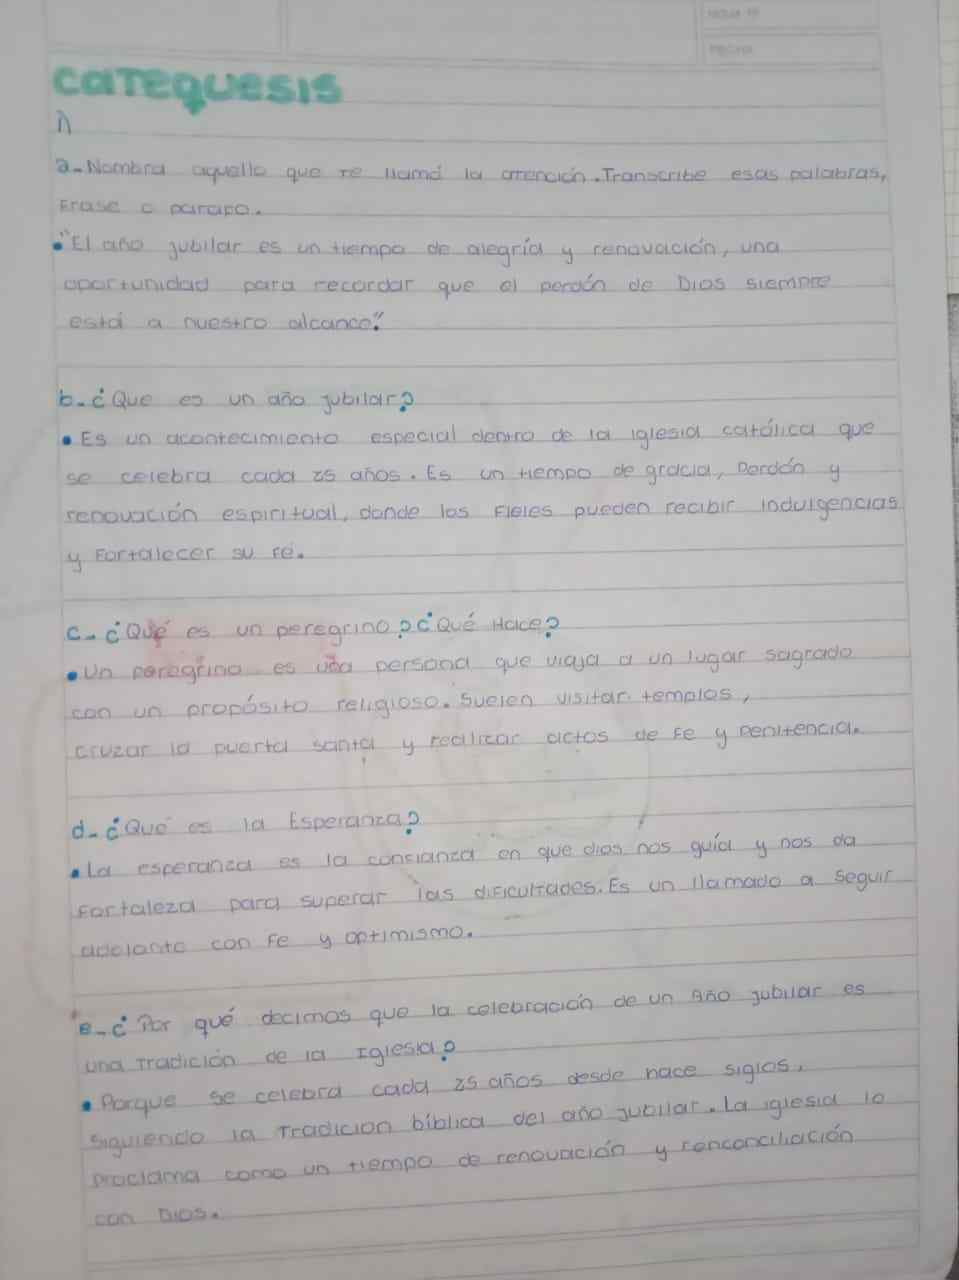 HOJA Nº
FECHA
CATEQUESIS
1)
a-Nombra aquello que te llamó la atención. Transcribe esas palabras,
Frase o parrafo.
• "El año jubilar es un tiempo de alegría y renovación, una
oportunidad para recordar que el perdón de Dios siempre
está a nuestro alcance".
b-¿Que es un año jubilar?
• Es un acontecimiento especial dentro de la iglesia católica que
se celebra cada 25 años. Es un tiempo de gracia, Perdón y
renovación espiritual, donde los Fieles pueden recibir indulgencias
y Fortalecer su Fé.
c-¿Qué es un peregrino? ¿Qué Hace?
• Un peregrino es una persona que viaja a un lugar sagrado
con un propósito religioso. Suelen visitar templos,
cruzar la puerta santa y realizar actos de Fe y penitencia.
d-¿Qué es la Esperanza?
• La esperanza es la consianza en que dios nos guía y nos da
Fortaleza para superar las dificultades. Es un llamado a seguir
adelante con Fe y optimismo.
e-¿Por qué decimos que la celebración de un Año jubilar es
una Tradición de la Iglesia?
• Porque se celebra cada 25 años desde hace siglos,
siguiendo la Tradicion bíblica del año jubilar. La iglesia lo
proclama como un tiempo de renovación y renconciliación
con Dios.